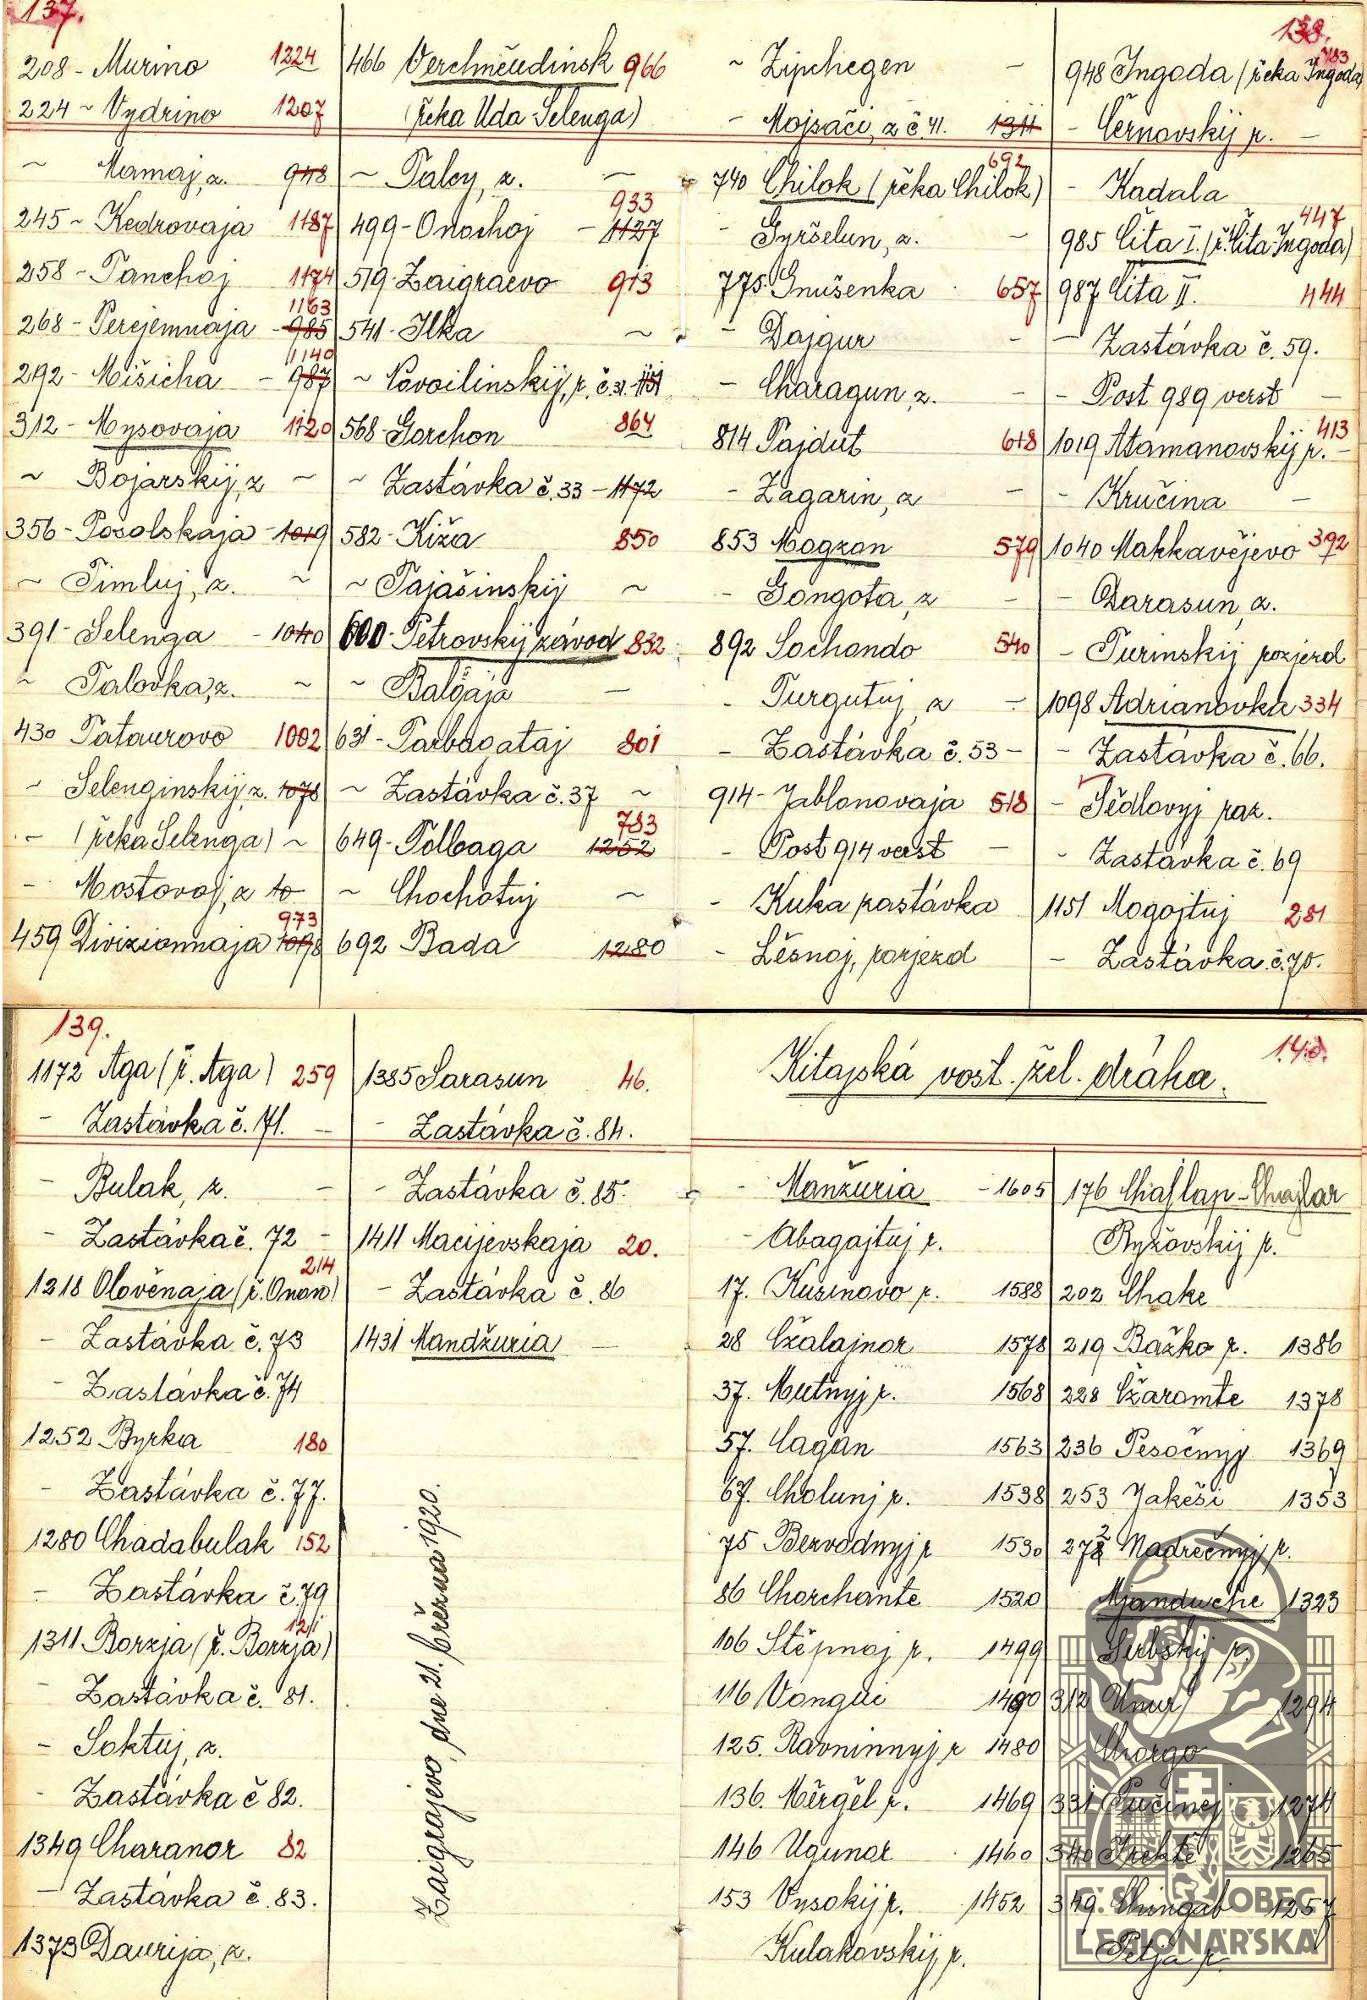 137.
208 - Murino 1224
224 ~ Vydrino 1207
~ Mamaj, z. 948
245 ~ Kedrovaja 1187
258 - Tanchoj 1174
1163
268 - Perejemnaja - 985
1140
292 - Mišicha - 987
312 - Mysovaja 1120
~ Bojarskij, z ~
356 - Posolskaja - 1019
~ Timluj, z. ~
391 - Selenga - 1040
~ Talovka, z. ~
430 Tataurovo 1002
- Selenginskij, z. 1078
- (řeka Selenga) ~
- Mostovoj, z
973
459 Divizionnaja 1098
466 Verchněudinsk 966
(řeka Uda Selenga)
~ Talcy, z. ~
933
499 - Onochoj - 1127
519 - Zaigraevo 913
541 - Ilka ~
~ Novoilinskij, r. č. 31 - 1151
568 - Gorchon 864
~ Zastávka č. 33 - 1172
582 - Kiža 850
~ Tajašinskij ~
600 - Petrovskij závod 832
~ Baljaja -
631 - Tarbagataj 801
~ Zastávka č. 37 ~
783
649 - Tolbaga 1252
~ Chochotuj ~
692 Bada 1280
~ Zipchegen -
- Mojzači, z č. 41. 1311
692
740 Chilok (řeka Chilok)
- Gyršelun, z. -
775. Gnušenka 657
- Dajgur -
- Charagun, z. -
814 Tajdut 618
- Zagarin, z -
853 Mogzon 579
- Gongota, z -
892 Sochondo 540
Turgutuj, z -
- Zastávka č. 53 -
914 - Jablonovaja 518
- Post 914 verst -
- Kuka zastávka
- Lěsnoj, rozjezd
138.
783
948 Ingoda (řeka Ingoda)
- Černovskij r. -
- Kadala
447
985 Čita I. (ř. Čita Ingoda)
987 Čita II. 444
- Zastávka č. 59.
- Post 989 verst -
413
1019 Atamanovskij r. -
- Kručina -
1040 Makkavějevo 392
- Darasun, z.
- Turinskij rozjezd
1098 Adrianovka 334
- Zastávka č. 66.
- Sědlovyj raz.
- Zastávka č. 69
1151 Mogojtuj 281
- Zastávka č. 70.
139.
1172 Aga (ř. Aga) 259
- Zastávka č. 71. -
- Bulak, z. -
- Zastávka č. 72 -
214
1218 Olověnaja (ř. Onon)
- Zastávka č. 73
- Zastávka č. 74
1252 Byrka 180
- Zastávka č. 77.
1280 Chadabulak 152
- Zastávka č. 79
121
1311 Borzja (ř. Borzja)
- Zastávka č. 81.
- Soktuj, z.
- Zastávka č 82.
1349 Charanor 82
- Zastávka č. 83.
1373 Daurija, z.
1385 Sarasun 46.
- Zastávka č. 84.
- Zastávka č. 85.
1411 Macijevskaja 20.
- Zastávka č. 86
1431 Mandžuria -
Zaigrajevo, dne 21. března 1920.
140.
Kitajská vost. žel. dráha.
- Manžuria - 1605
- Abagajtuj r.
17. Kusinovo r. 1588
28 Čžalajnor 1578
37. Mutnyj r. 1568
57. Cagan 1563
67. Cholunj r. 1538
75 Bezvodnyj r 1530
86 Chorchonte 1520
106 Stěpnoj r. 1499
116 Vanguí 1490
125. Ravninnyj r 1480
136. Měrgěl r. 1469
146 Ugunor 1460
153 Vysokij r. 1452
Kulakovskij, r.
176 Chajlap - Chajlar
Ryžovskij r.
202 Chake
219 Bažko r. 1386
228 Čžaromte 1378
236 Pesočnyj 1369
253 Jakěši 1353
272 Nadrečnyj r.
Mjanduche 1323
Serbskij r.
312 Unur 1294
Chorgo
331 Pučinej 1274
340 Irektě 1265
349 Chingab 1257
Petja r.
Č S OBEC
LEGIONÁŘSKÁ